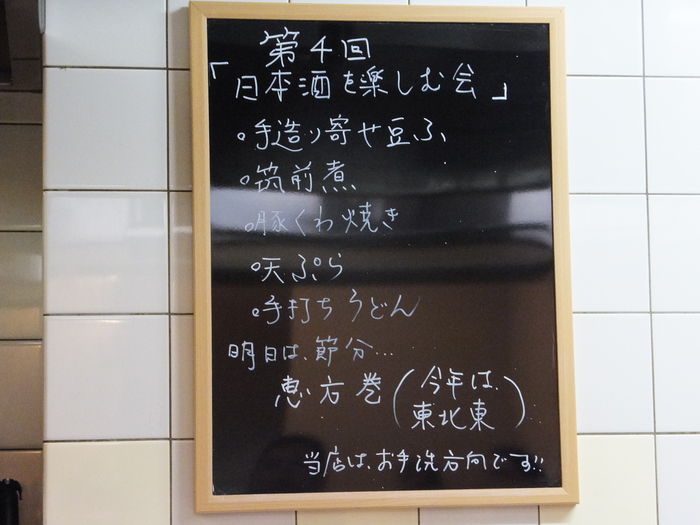 第4回
「日本酒を楽しむ会」
。手造り寄せ豆ふ
。筑前煮
。豚くわ焼き
。天ぷら
。手打ちうどん
明日は、節分…
恵方巻(今年は、
東北東)
当店は、お手洗方向です!!